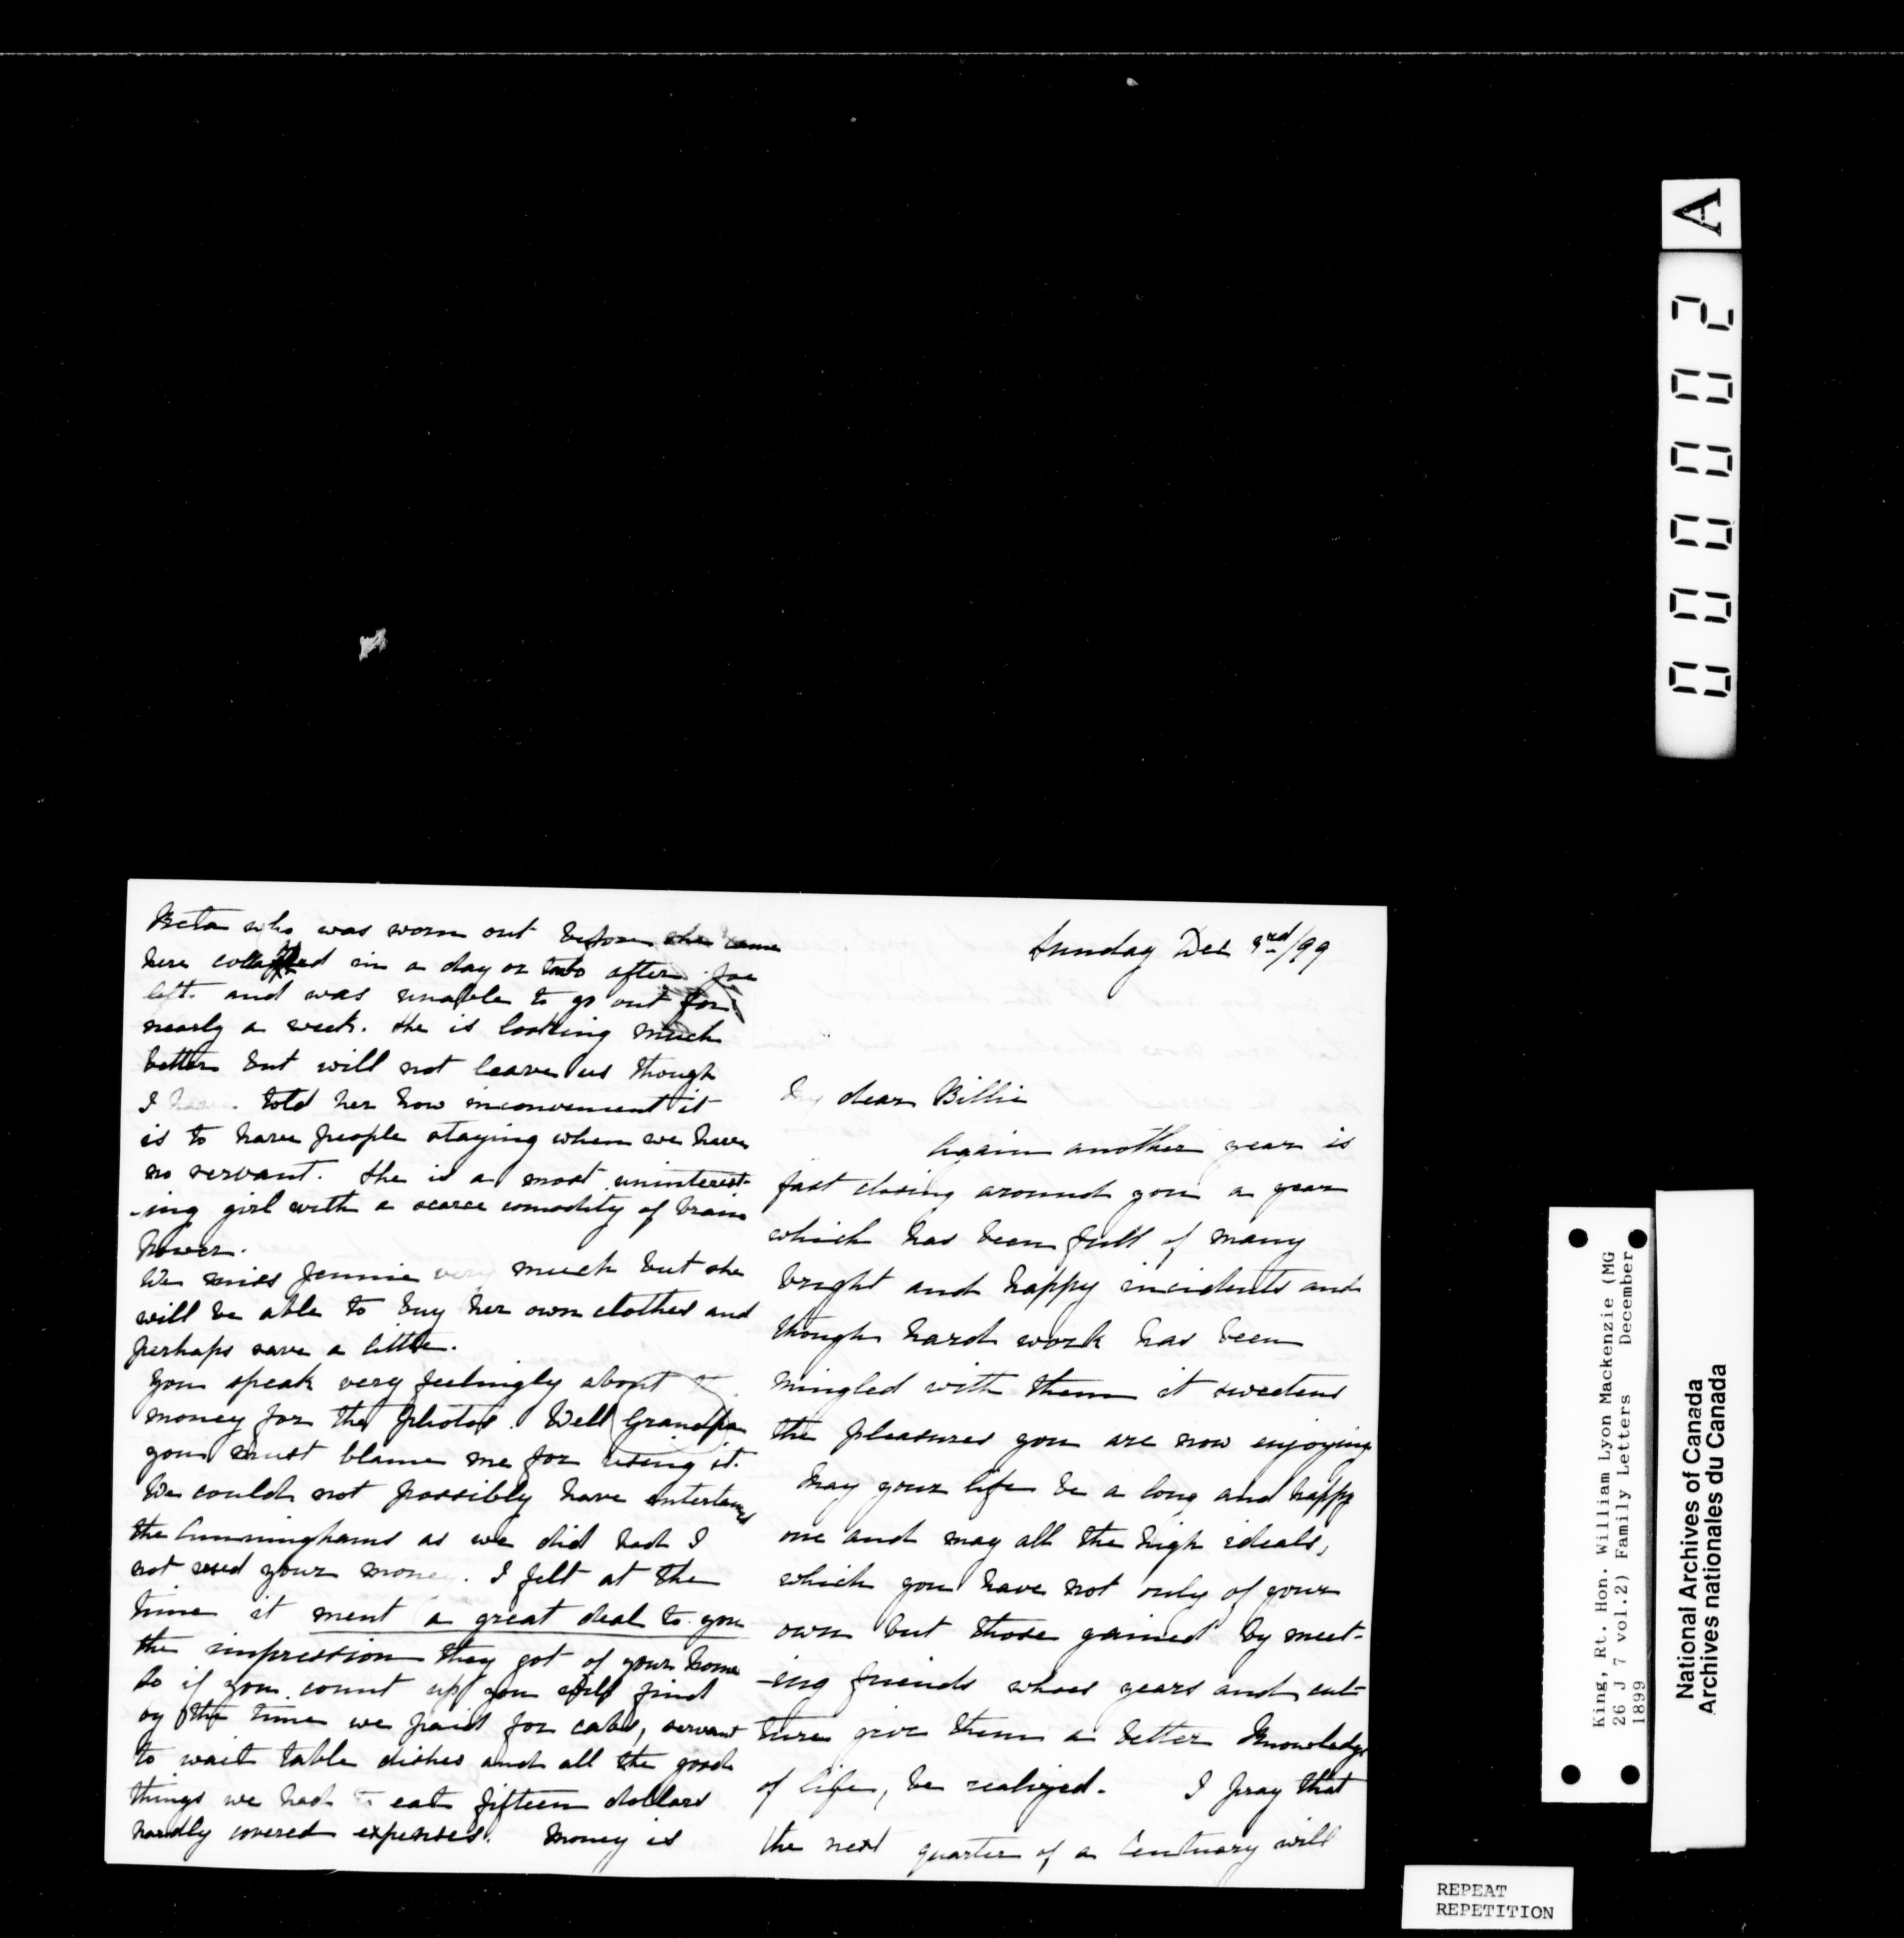 Beta who was worn out before she came
here collapsed in a day or two after Joe
left. and was unable to go out for
nearly a week. She is looking much
better but will not leave us though
I have told her how inconvenient it
is to have people staying when we have
no servant. She is a most uninterest-
-ing girl with a scarce comodity of brain
power.
We miss Jennie very much but she
will be able to buy her own clothes and
perhaps save a little.
You speak very feelingly about
money for the photos. Well Grandpa
you must blame me for using it.
We could not possibly have entertained
the Cunninghams as we did had I
not used your money. I felt at the
time it ment a great deal to you
the impression they got of your home
so if you count up you will find
by the time we paid for cabs, servant
to wait table dishes and all the good
things we had to eat fifteen dollars
hardly covered expenses. Money is
Sunday Dec 3rd/99
My dear Billie
Again another year is
fast closing around you a year
which has been full of many
bright and happy incidents and
though hard work has been
mingled with them it sweetens
the pleasures you are now enjoying
May your life be a long and happy
one and may all the high ideals,
which you have not only of your
own but those gained by meet-
-ing friends whoes years and cul-
ture give them a better knowledge
of life, be realized. I pray that
the next quarter of a Centuary will
A
000002
King, Rt. Hon. William Lyon Mackenzie (MG
26 J 7 vol.2) Family Letters December
1899
National Archives of Canada
Archives nationales du Canada
REPEAT
REPETITION